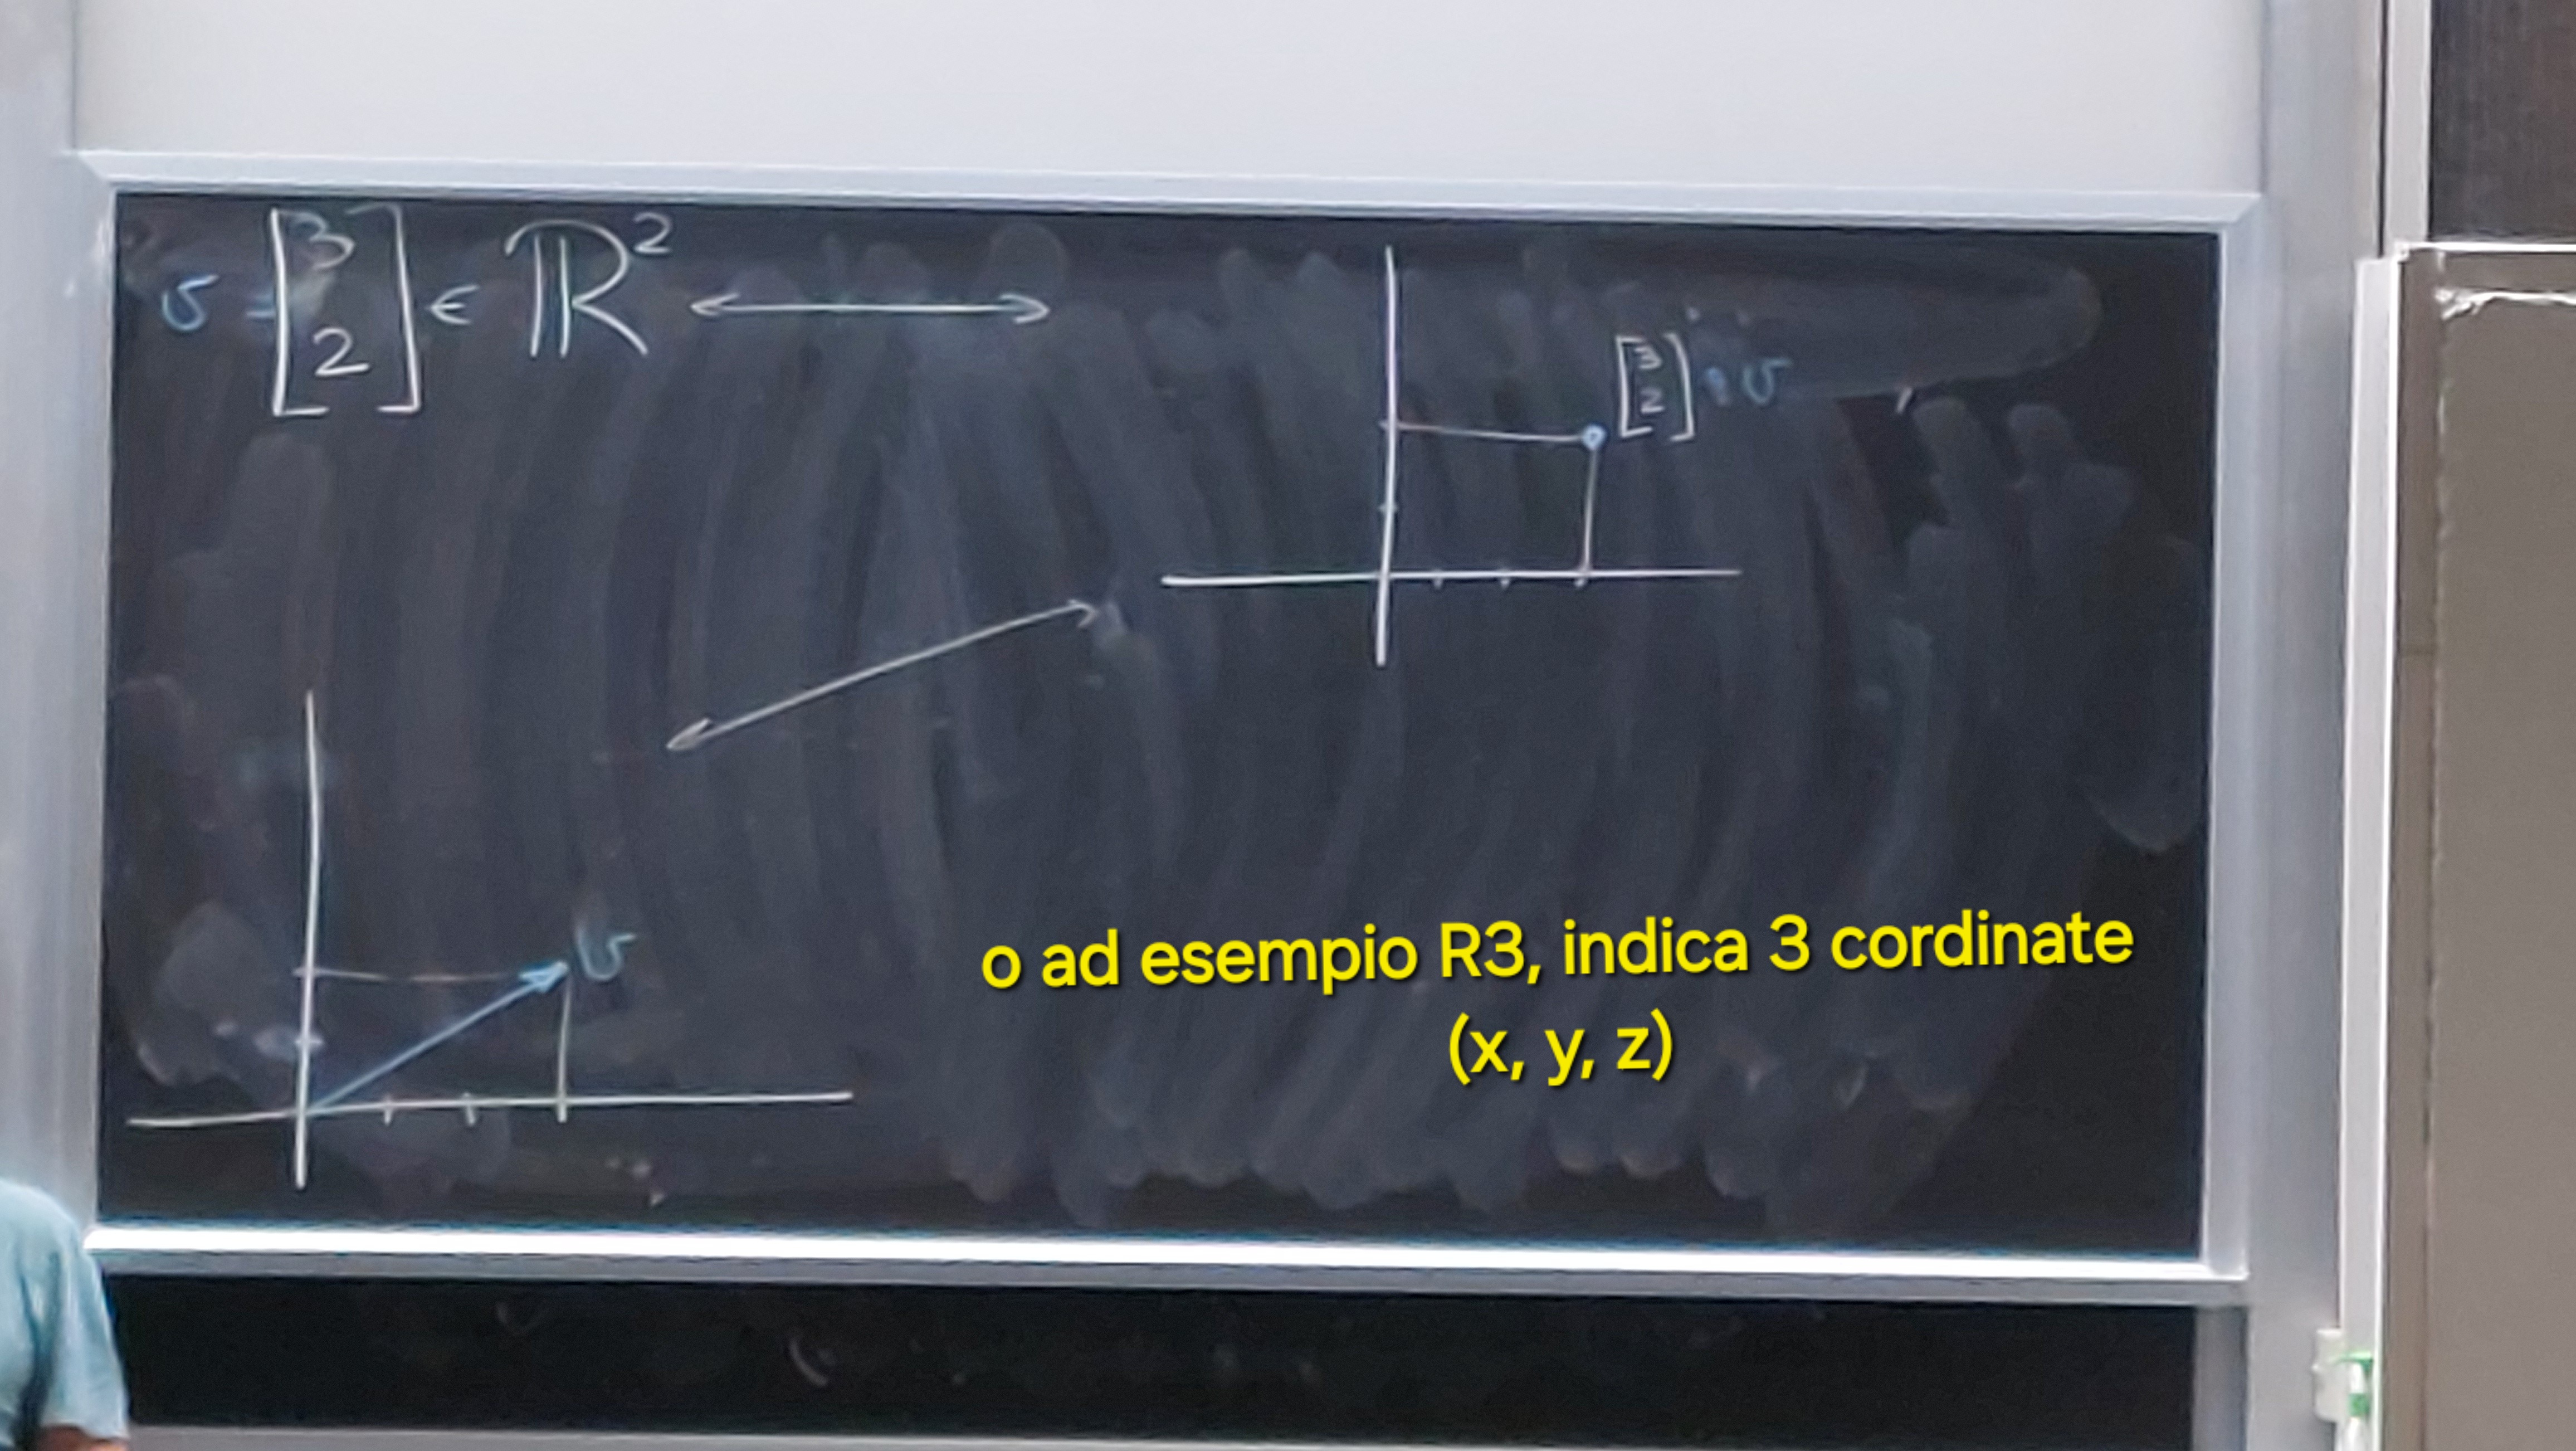 v = [3 2] ∈ ℝ²
[3 2] = v
v
o ad esempio R3, indica 3 cordinate
(x, y, z)